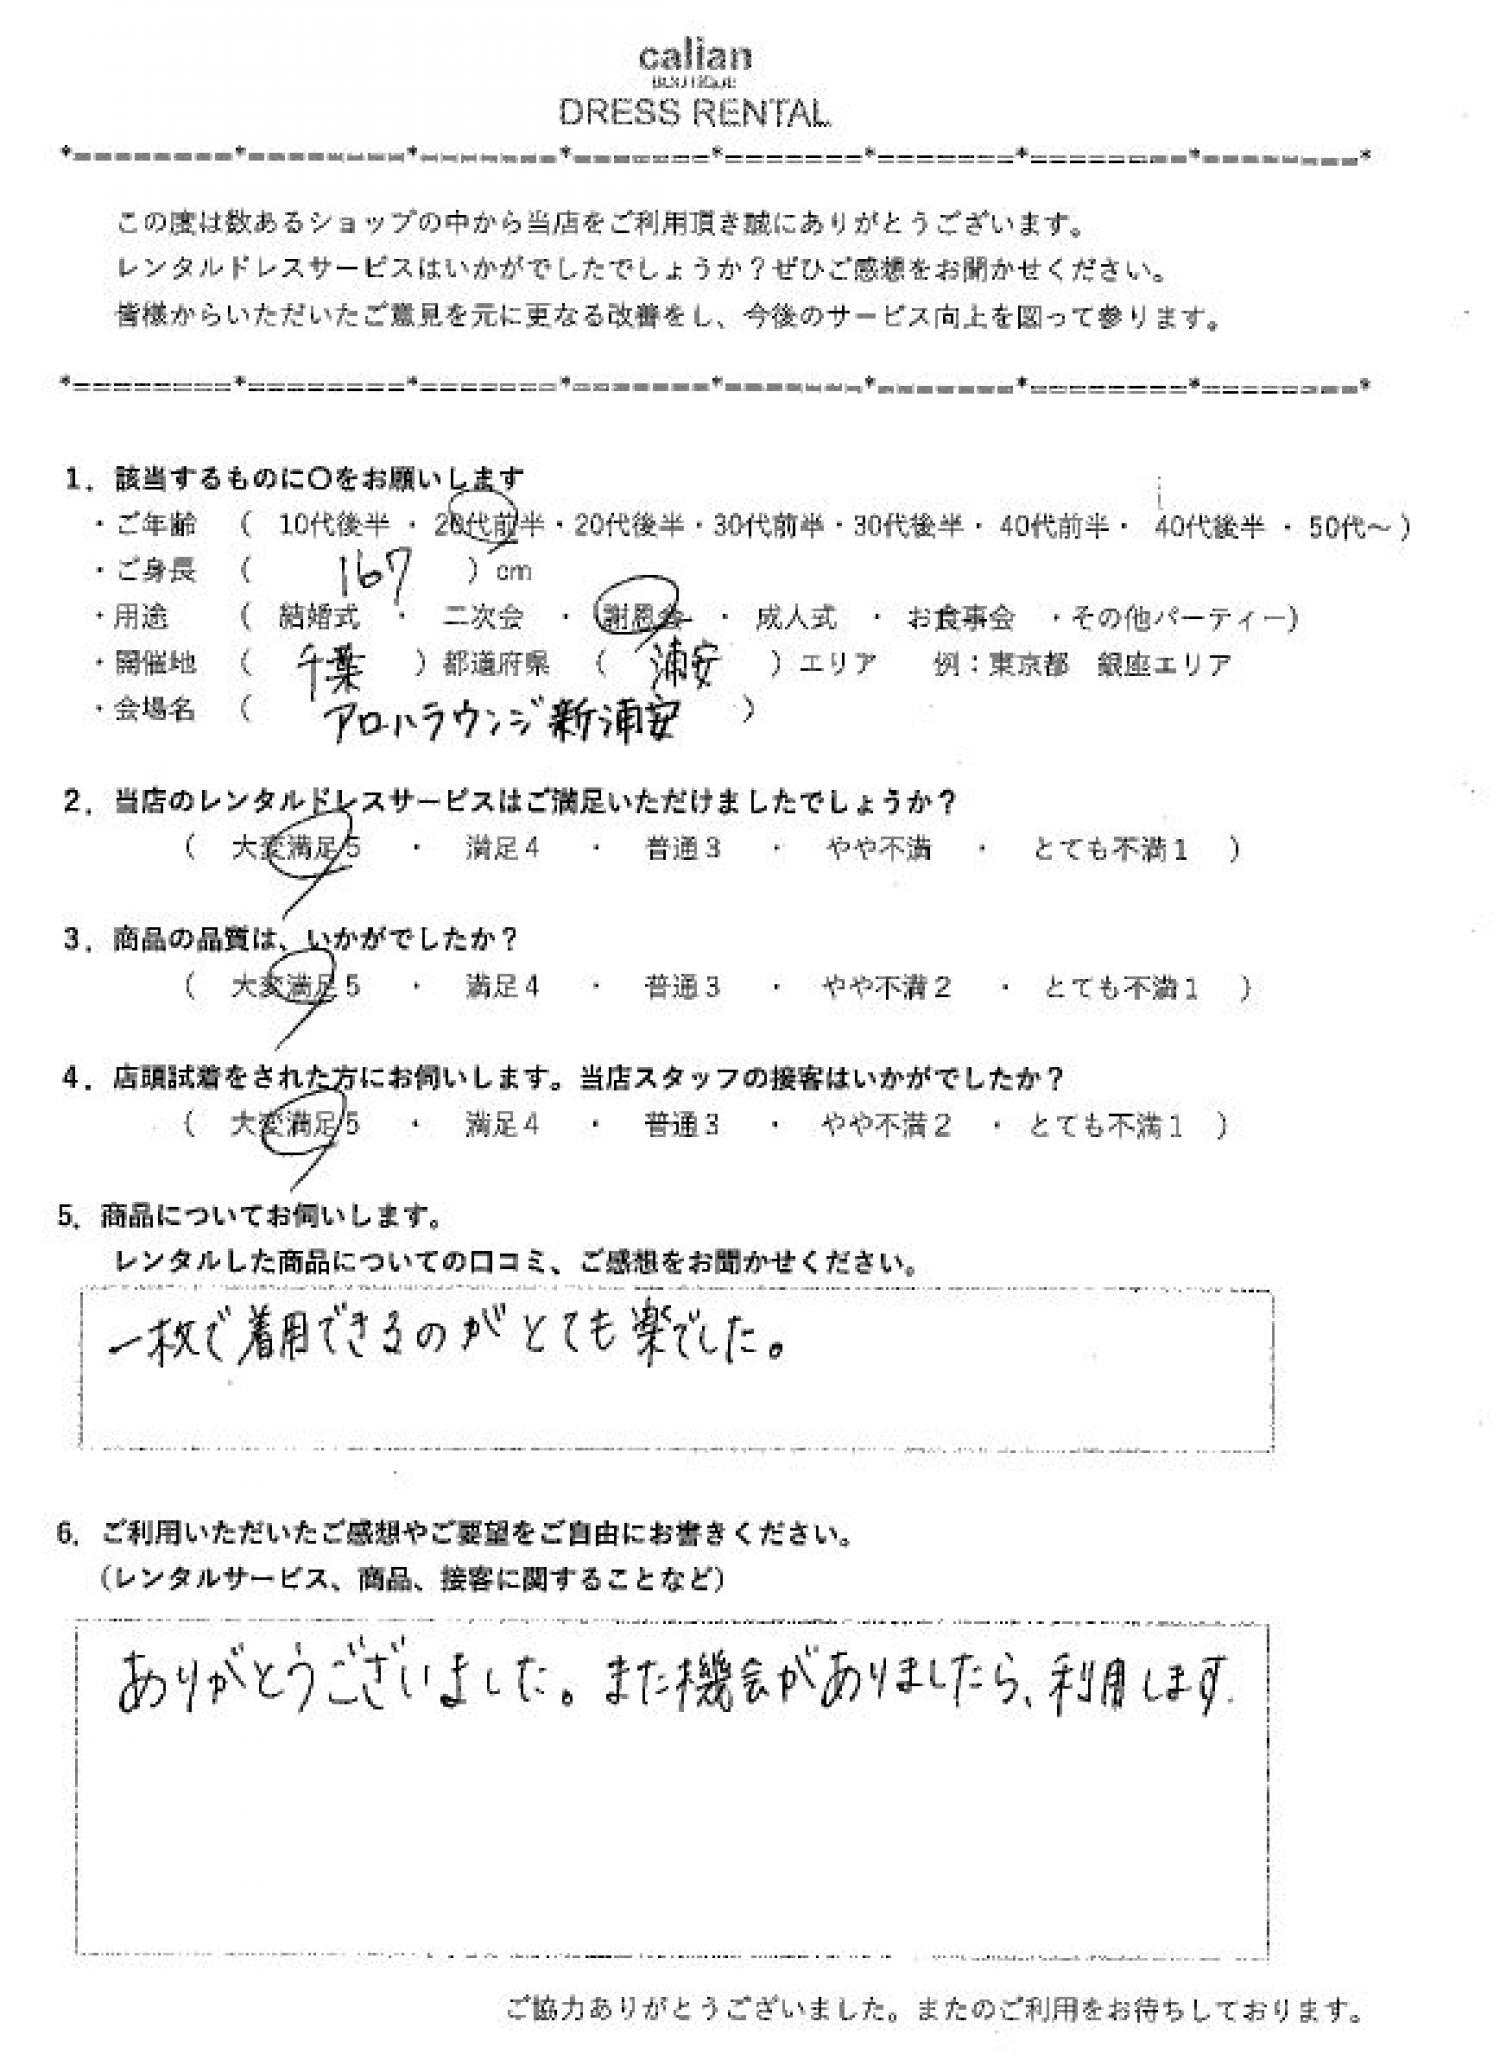 calian
BOUTIQUE
DRESS RENTAL
*========*========*=======*=======*=======*=======*========*========*
この度は数あるショップの中から当店をご利用頂き誠にありがとうございます。
レンタルドレスサービスはいかがでしたでしょうか？ぜひご感想をお聞かせください。
皆様からいただいたご意見を元に更なる改善をし、今後のサービス向上を図って参ります。
*========*========*=======*=======*=======*=======*========*========*
1．該当するものに〇をお願いします
・ご年齢 （ 10代後半 ・ 20代前半・20代後半・30代前半・30代後半・ 40代前半・ 40代後半 ・ 50代～ ）
・ご身長 （ 167 ）cm
・用途 （ 結婚式 ・ 二次会 ・ 謝恩会 ・ 成人式 ・ お食事会 ・その他パーティー）
・開催地 （ 千葉 ）都道府県 （ 浦安 ）エリア 例：東京都 銀座エリア
・会場名 （ アロハラウンジ新浦安 ）
2．当店のレンタルドレスサービスはご満足いただけましたでしょうか？
（ 大変満足5 ・ 満足4 ・ 普通3 ・ やや不満 ・ とても不満1 ）
3．商品の品質は、いかがでしたか？
（ 大変満足5 ・ 満足4 ・ 普通3 ・ やや不満2 ・ とても不満1 ）
4．店頭試着をされた方にお伺いします。当店スタッフの接客はいかがでしたか？
（ 大変満足5 ・ 満足4 ・ 普通3 ・ やや不満2 ・ とても不満1 ）
5．商品についてお伺いします。
レンタルした商品についての口コミ、ご感想をお聞かせください。
一枚で着用できるのがとても楽でした。
6．ご利用いただいたご感想やご要望をご自由にお書きください。
（レンタルサービス、商品、接客に関することなど）
ありがとうございました。また機会がありましたら、利用します.
ご協力ありがとうございました。またのご利用をお待ちしております。